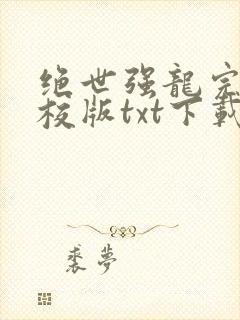 绝世强龍完
校版txt下載
裘夢